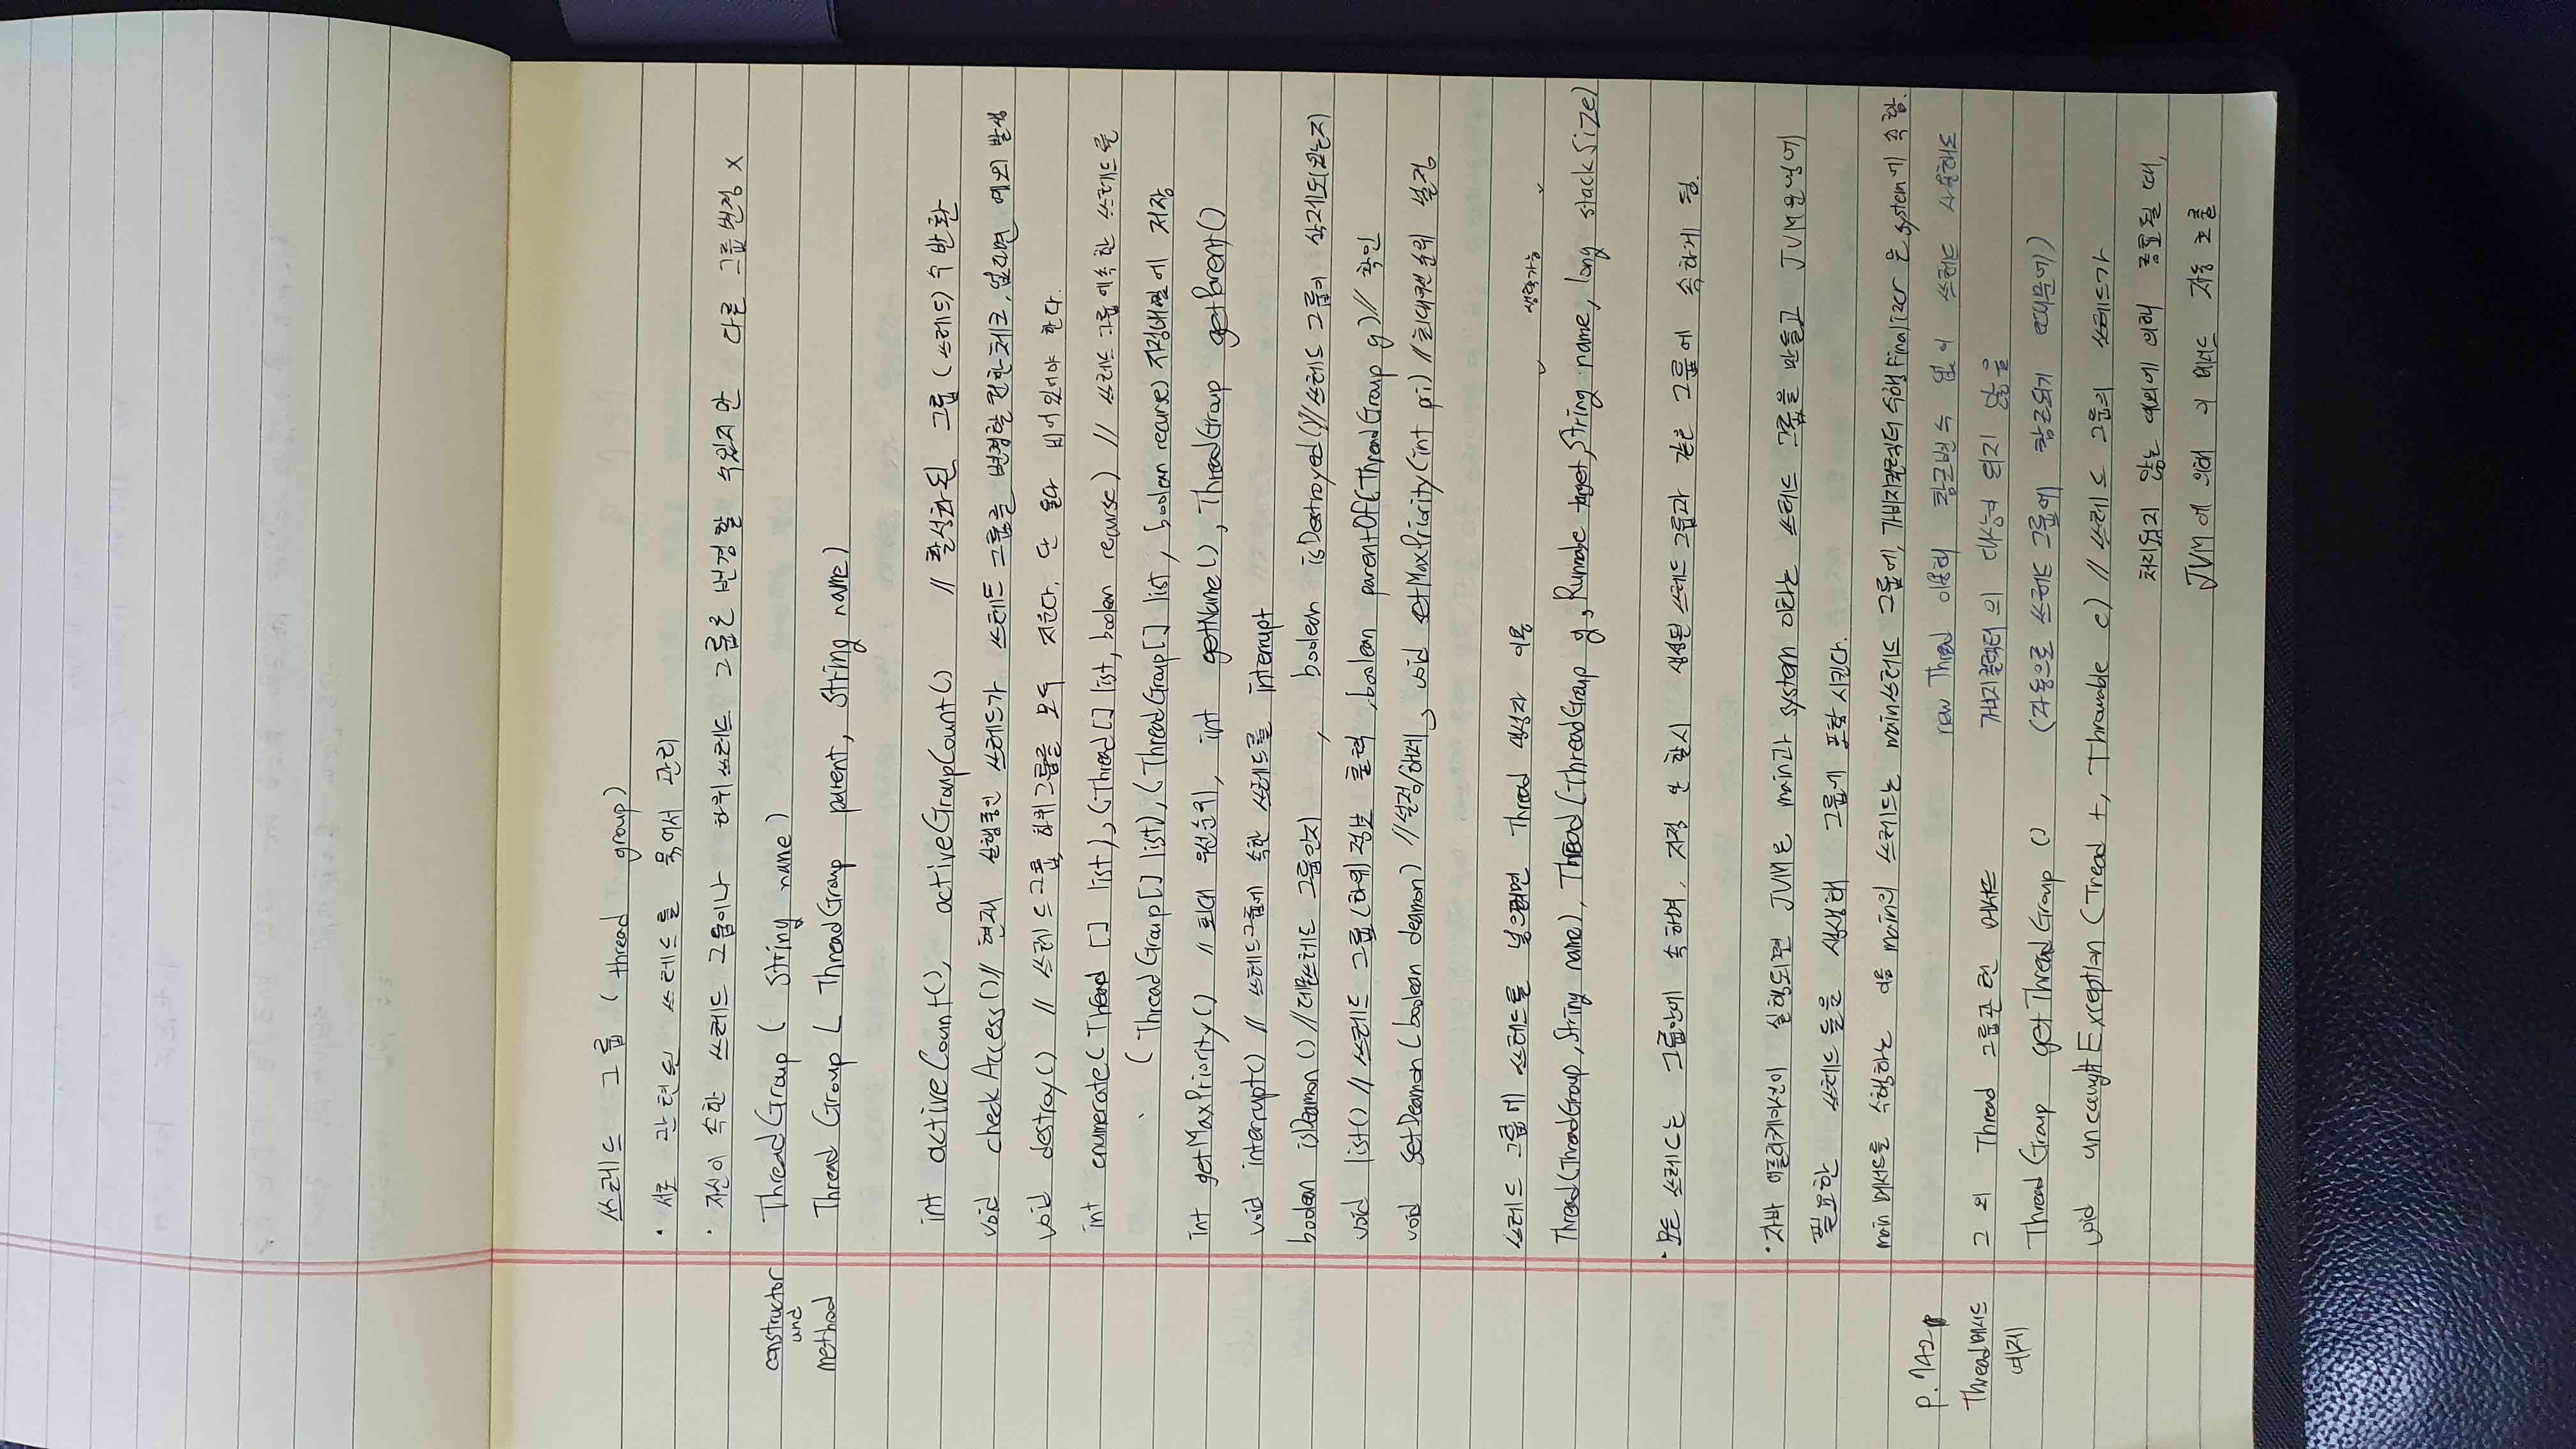 쓰레드 그룹 (thread group)
· 서로 관련된 쓰레드를 묶어서 관리
· 자신이 속한 쓰레드 그룹이나 하위쓰레드 그룹은 변경할 수있지만 다른 그룹변경 x
constructor and method
ThreadGroup ( String name )
Thread Group ( ThreadGroup parent, String name )
int activeCount(), activeGroupCount() // 활성화된 그룹 (쓰레드) 수 반환
void checkAccess() // 현재 실행중인 쓰레드가 쓰레드 그룹을 변경할 권한체크, 없다면 예외 발생
void destroy() // 쓰레드그룹, 하위그룹을 모두 지운다. 단 둘다 비어있어야 한다.
int enumerate( Thread [] list ), (Thread[] list, boolean recurse) // 쓰레드 그룹에속한 쓰레드를
( ThreadGroup[] list), (ThreadGroup[] list, boolean recurse) 지정배열에 저장
int getMaxPriority() // 최대 우선순위, int getName(), ThreadGroup getParent()
void interrupt() // 쓰레드그룹에 속한 쓰레드를 interrupt
boolean isDeamon() // 데몬쓰레드 그룹인지 , boolean isDestroyed() // 쓰레드 그룹이 삭제되었는지
void list() // 쓰레드 그룹(하위) 정보 출력, boolean parentOf(ThreadGroup g) // 확인
void setDeamon(boolean deamon) // 설정/해제, void setMaxPriority(int pri) // 최대우선순위 설정
쓰레드 그룹에 쓰레드를 넣으려면 Thread 생성자 이용
생략가능
Thread(ThreadGroup, String name), Thread(ThreadGroup g, Runnable target, String name, long stackSize)
· 모든 쓰레드는 그룹안에 속하며, 지정 안 할시 생성된 쓰레드 그룹과 같은 그룹에 속하게 됨.
· 자바 어플리케이션이 실행되면 JVM은 main과 system 이라는 쓰레드 그룹을 만들고 JVM운영에
필요한 쓰레드 들을 생성해 그룹에 포함 시킨다.
main 메서드를 수행하는 이름 main의 쓰레드는 main쓰레드 그룹에, 가비지컬렉터 수행 Finalizer 은 system에 속함.
p.742
Thread메서드
예제
new Thred 이용해 참조변수 없이 쓰레드 사용해도
그 외 Thread 그룹관련 메서드 가비지컬렉터의 대상이 되지 않음
ThreadGroup getThreadGroup () (자동으로 쓰레드 그룹에 참조되기 때문에)
void uncaughtException (Tread t, Throwable e) // 쓰레드 그룹의 쓰레드가
처리되지 않는 예외에 의해 종료될 때,
JVM에 의해 이 메서드 자동 호출